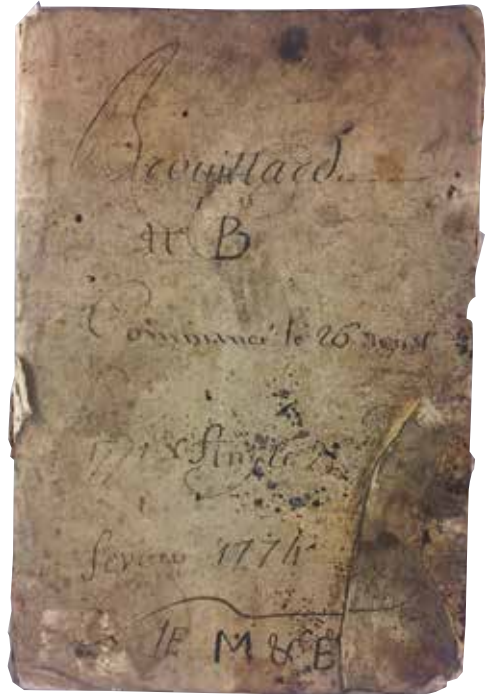 Brouillard
N° B
Commancé le 26 aoust
1771 & fini le
fevrier 1774
M & B